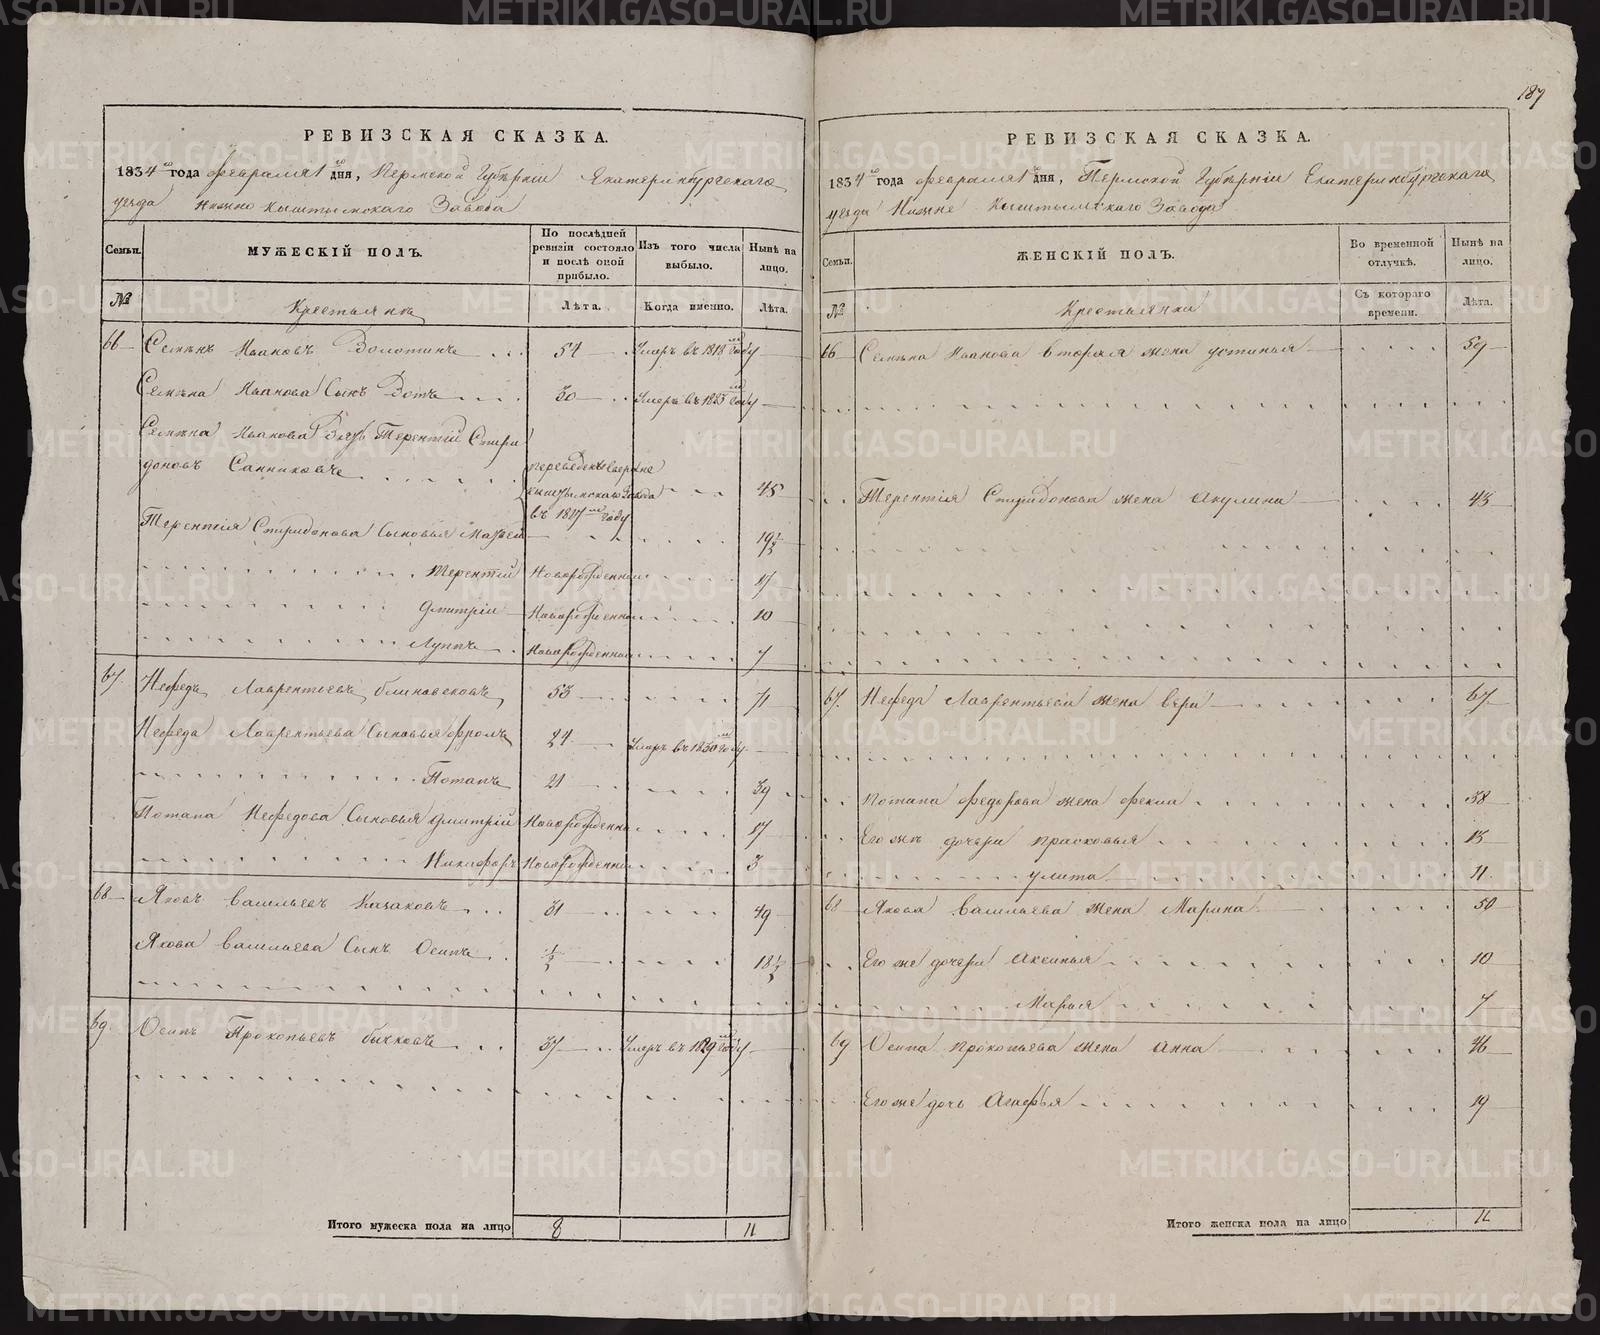 187
РЕВИЗСКАЯ СКАЗКА.
1834 го года февраля 1 го дня, Пермской Губерніи Екатеринбургскаго
уезда Нижно Кыштымскаго Завода
Семьи. МУЖЕСКІЙ ПОЛЪ. По послѣдней ревизіи состояло и послѣ оной прибыло. Изъ того числа выбыло. Нынѣ на лицо.
№ Крестьяне Лѣта. Когда именно. Лѣта.
66 Семенъ Ивановъ Золотинъ 54 Умеръ въ 1818 году
Семена Иванова Сынъ Зотъ 30 Умеръ въ 1825 году
Семена Иванова Зять Терентій Спири
доновъ Санниковъ переведенъ Верхне 45
Кыштымскаго Завода
въ 1817 году
Терентія Спиридонова Сыновья Матвей 19½
Терентій Новорожденный 17
Дмитріи Новорожденный 10
Луппъ Новорожденный 7
67. Нефедъ Лаврентьевъ Блиновсковъ 53 71
Нефеда Лаврентьева Сыновья Фролъ 24 Умеръ въ 1830 году
Потапъ 21 39
Потапа Нефедова Сыновья Дмитрій Новорожденны 17
Никифоръ Новорожденны 3
68 Яковъ Васильевъ Казаковъ 31 49
Якова Васильева Сынъ Осипъ ½ 18½
69. Осипъ Прокопьевъ Бычковъ 37 Умеръ въ 1829 году
Итого мужеска пола на лицо 8 11
РЕВИЗСКАЯ СКАЗКА.
1834 го года февраля 1 го дня, Пермской Губерніи Екатеринбургскаго
уезда Нижне Кыштымскаго Завода
Семьи. ЖЕНСКІЙ ПОЛЪ. Во временной отлучкѣ. Нынѣ на лицо.
№ Крестьянки Съ котораго времени. Лѣта.
66 Семена Иванова вторая жена Устинья 59
Терентія Спиридонова жена Акулина 43
67. Нефеда Лаврентьева жена Вера 67
Потапа Федорова жена Фекла 38
Его же дочери Прасковья 13
Улита 11
68 Якова Васильева жена Марина 50
Его же дочери Аксинья 10
Марья 7
69 Осипа Прокопьева жена Анна 46
Его же дочь Агафья 19
Итого женска пола на лицо 11
METRIKI.GASO-URAL.RU